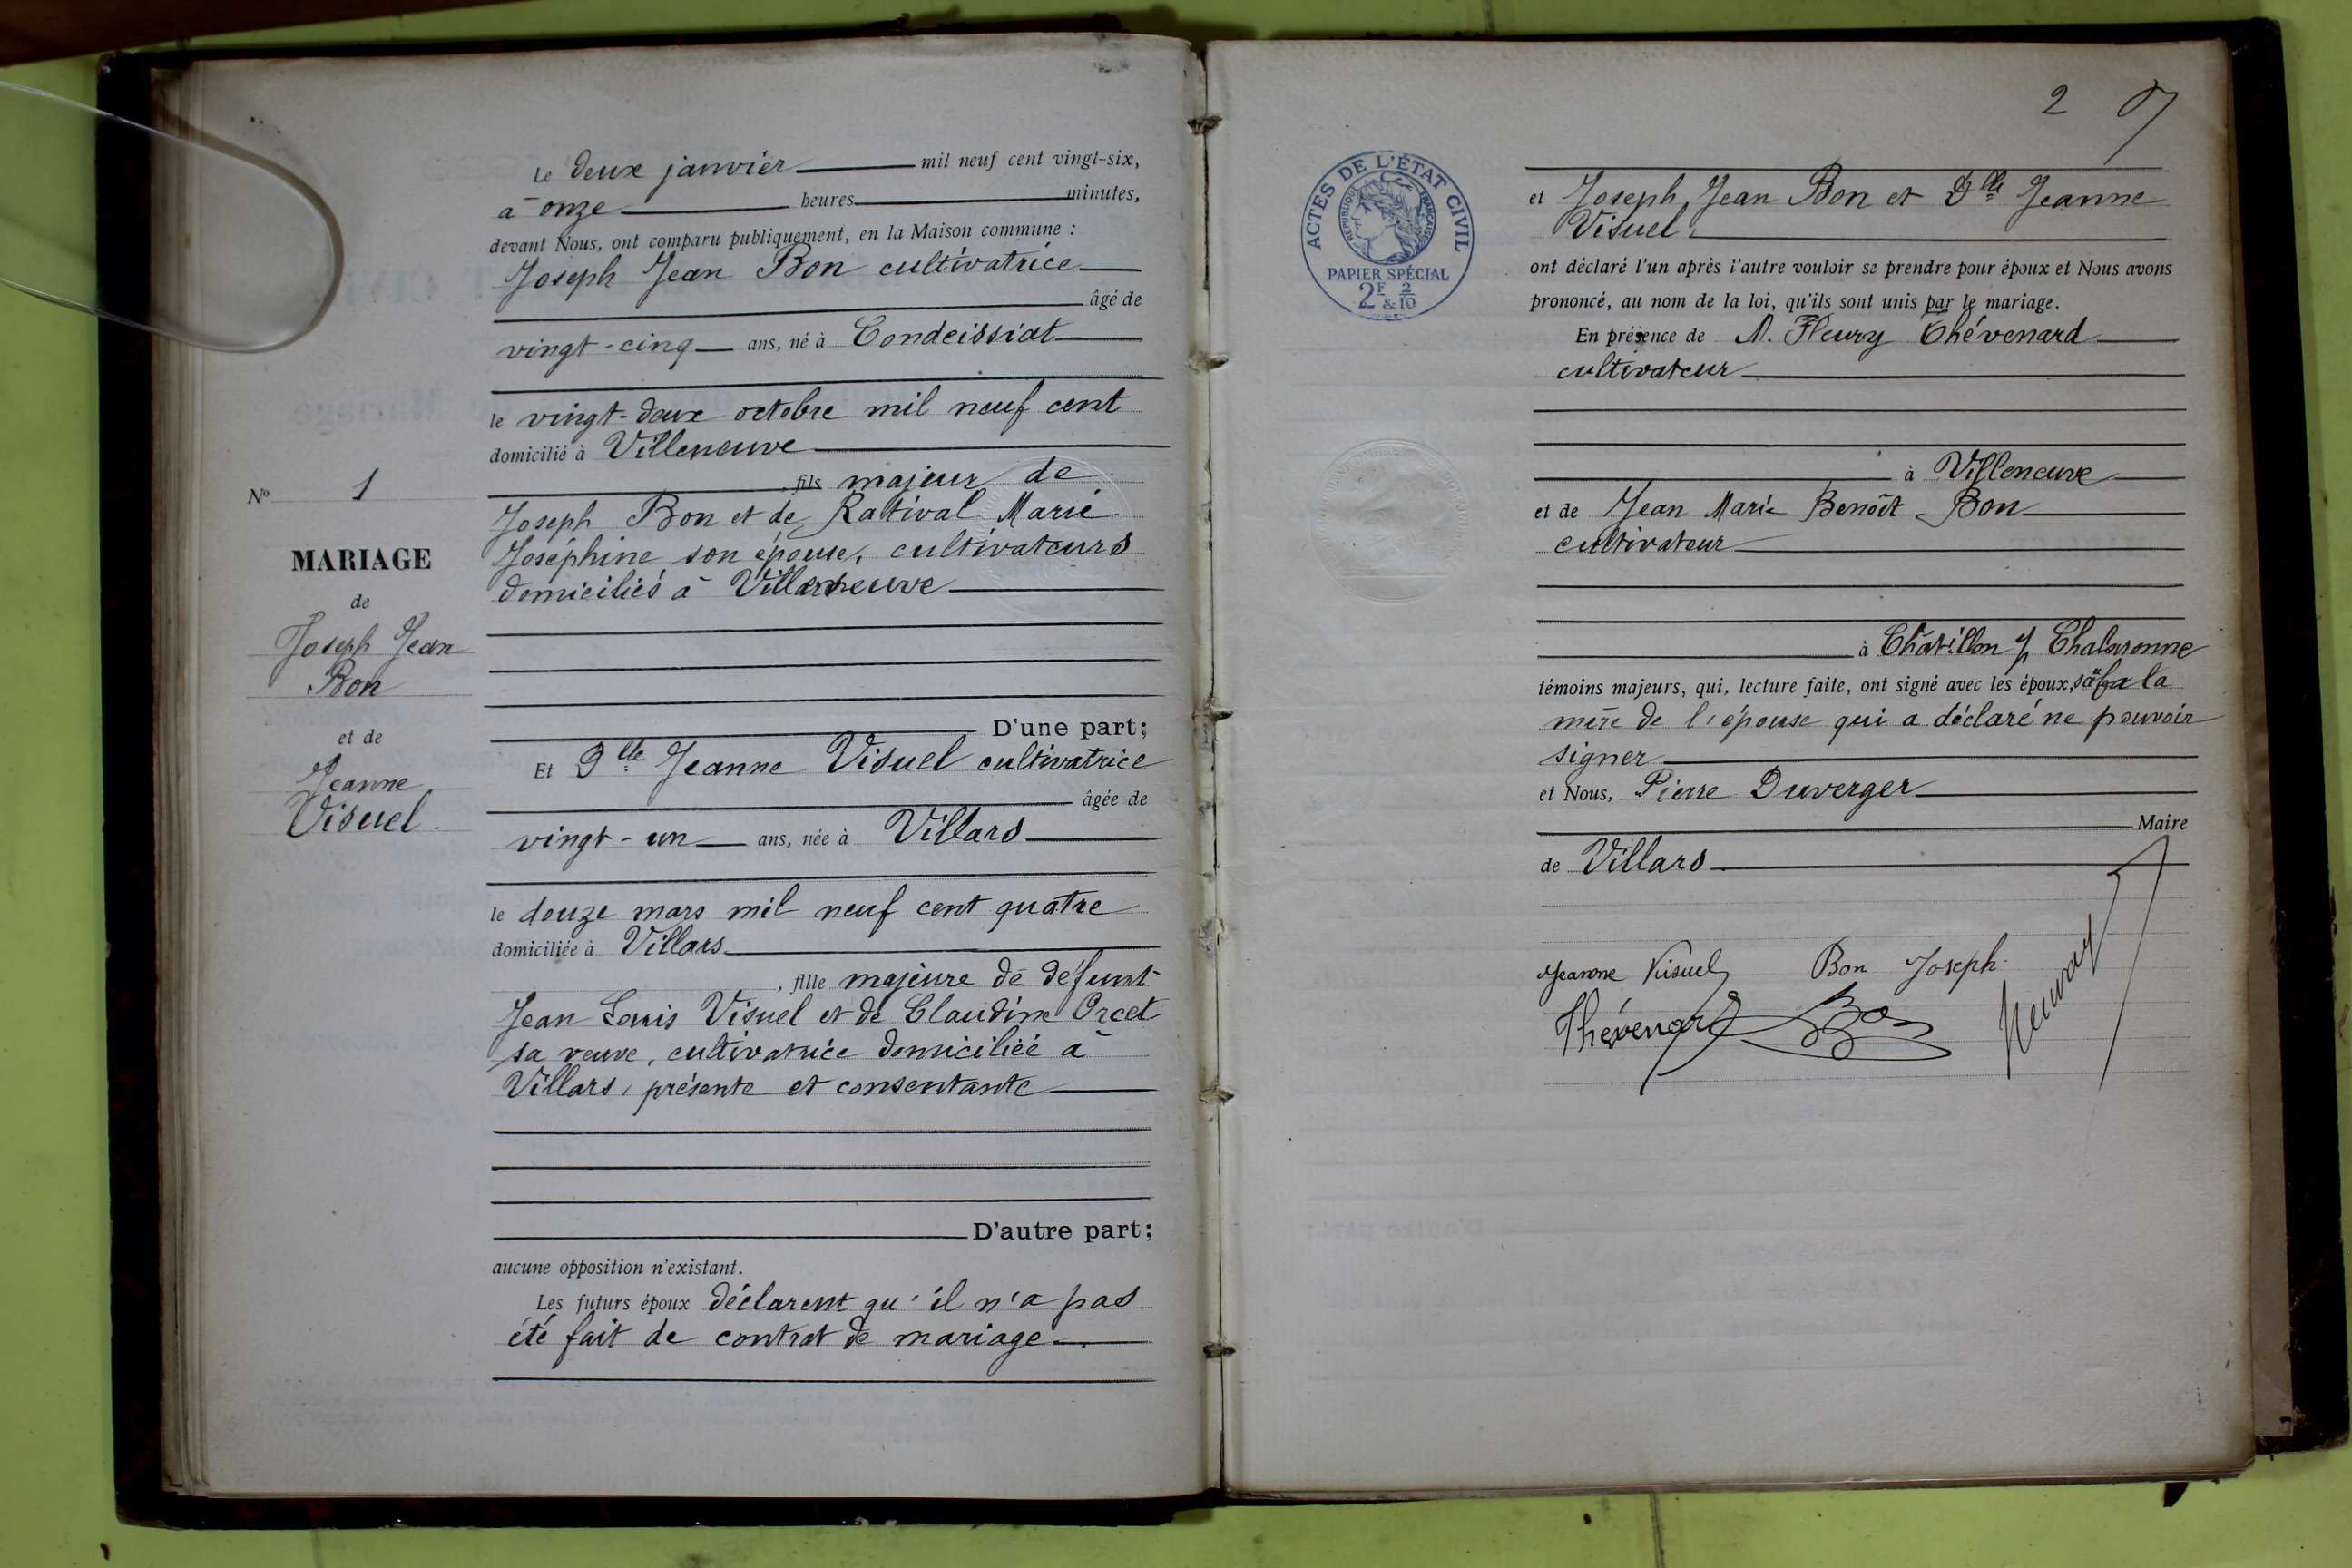 Le deux janvier mil neuf cent vingt-six,
à onze heures minutes,
devant Nous, ont comparu publiquement, en la Maison commune :
Joseph Jean Bon cultivatrice
âgé de
vingt-cinq ans, né à Condeissiat
le vingt-deux octobre mil neuf cent
domicilié à Villeneuve
, fils majeur de
Joseph Bon et de Ratival Marie
Joséphine son épouse, cultivateurs
domiciliés à Villeneuve
D'une part;
Et Dlle Jeanne Visuel cultivatrice
âgée de
vingt-un ans, née à Villars
le douze mars mil neuf cent quatre
domiciliée à Villars
, fille majeure de défunt
Jean Louis Visuel et de Claudine Orcet
sa veuve, cultivatrice domiciliée à
Villars, présente et consentante
D'autre part;
aucune opposition n'existant.
Les futurs époux déclarent qu'il n'a pas
été fait de contrat de mariage.
No 1
MARIAGE
de
Joseph Jean
Bon
et de
Jeanne
Visuel.
2
ACTES DE L'ÉTAT CIVIL
RÉPUBLIQUE FRANÇAISE
PAPIER SPÉCIAL
2F & 2/10
et Joseph Jean Bon et Dlle Jeanne
Visuel,
ont déclaré l'un après l'autre vouloir se prendre pour époux et Nous avons
prononcé, au nom de la loi, qu'ils sont unis par le mariage.
En présence de M. Fleury Thévenard
cultivateur
à Villeneuve
et de Jean Marie Benoît Bon
cultivateur
à Châtillon s/ Chalaronne
témoins majeurs, qui, lecture faite, ont signé avec les époux, sauf la
mère de l'épouse qui a déclaré ne pouvoir
signer
et Nous, Pierre Duverger
Maire
de Villars
Jeanne Visuel Bon Joseph
Thévenard Bon